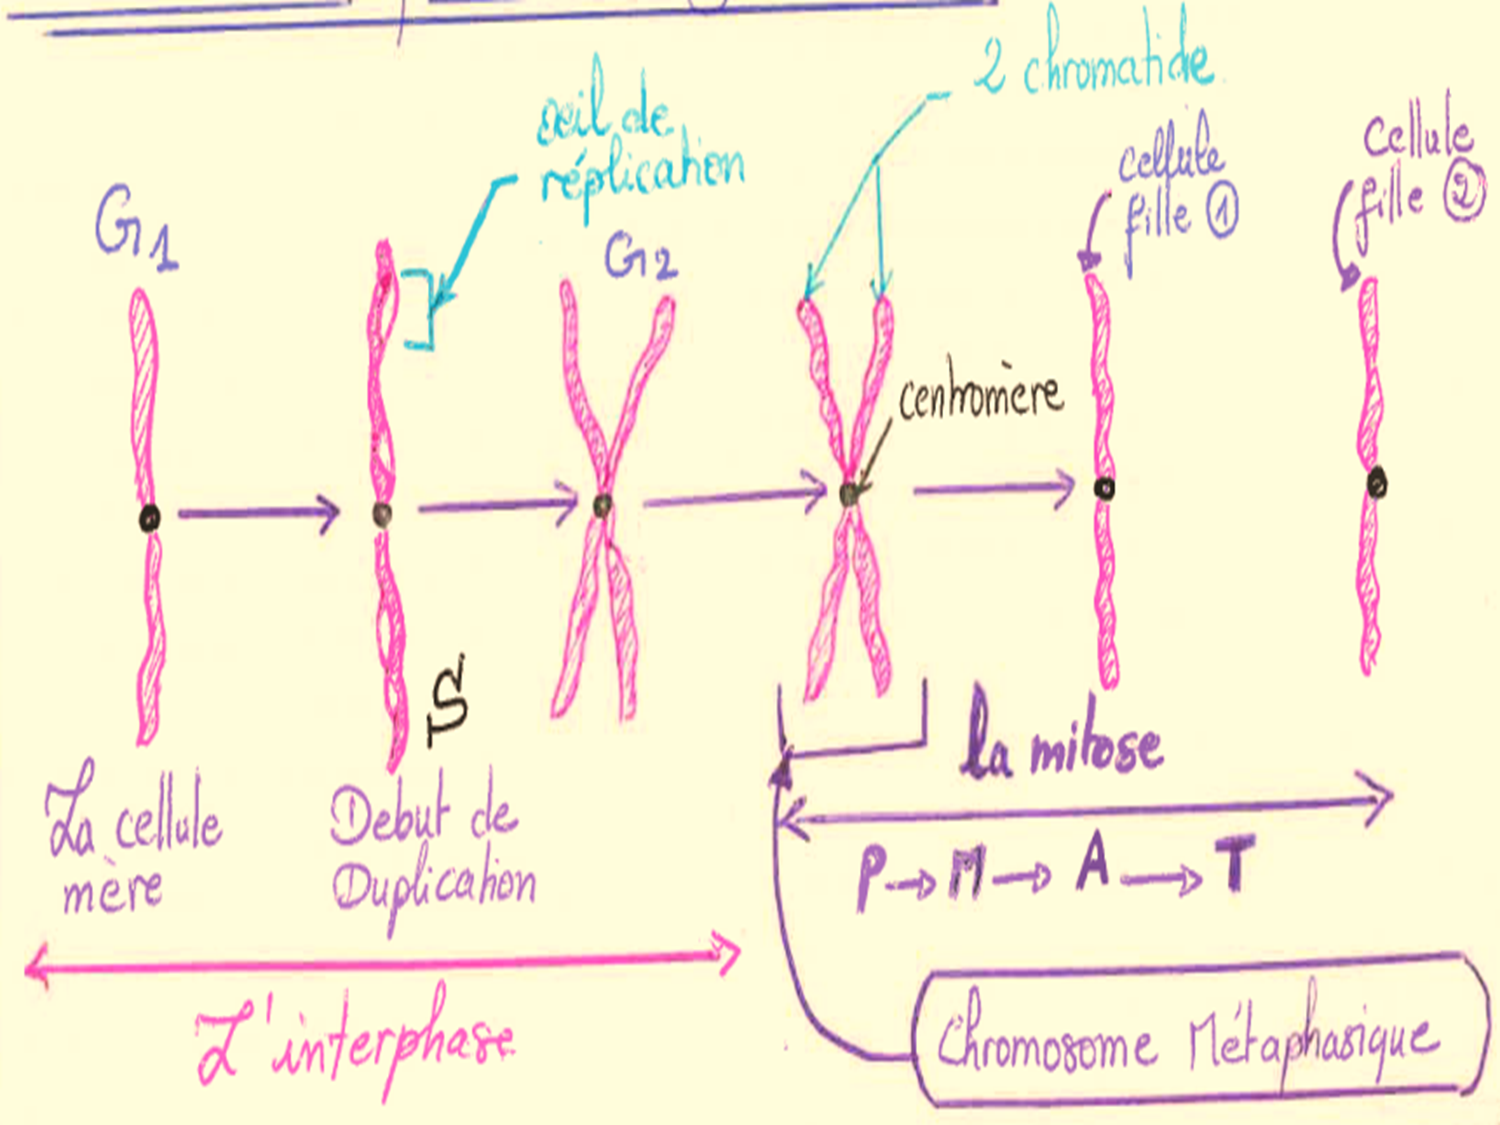 2 chromatide
œil de
réplication
cellule
fille ①
cellule
fille ②
G1
G2
centromère
S
La cellule
mère
Debut de
Duplication
la mitose
P → M → A → T
L'interphase
Chromosome Métaphasique